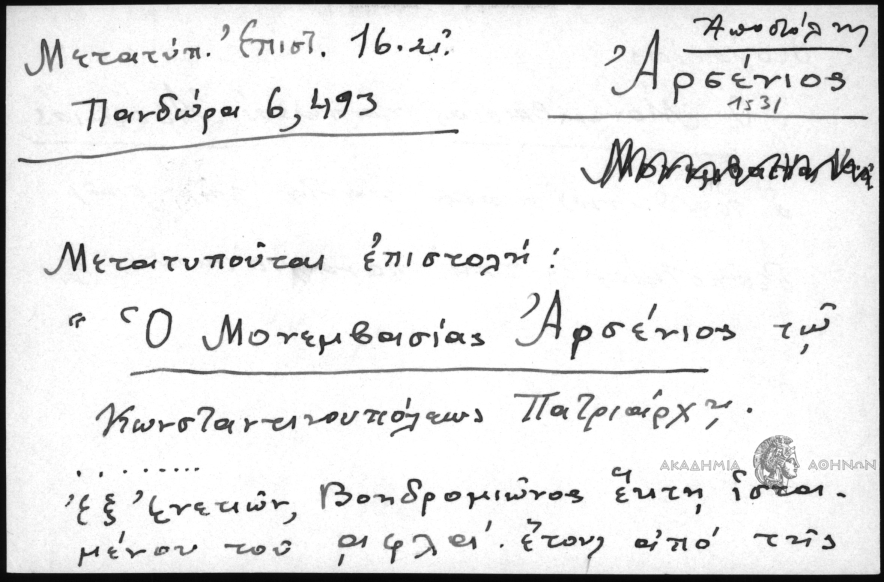 Μετατύπ. Ἐπιστ. 16. αἰ.
Πανδώρα 6, 493
Ἀποστόλη
Ἀρσένιος
1531
Μετατυποῦται ἐπιστολή :
“ Ὁ Μονεμβασίας Ἀρσένιος τῷ
Κωνσταντινουπόλεως Πατριάρχῃ.
. . . . . . . .
ἐξ Ἐνετιῶν, Βοηδρομιῶνος ἕκτῃ ἱστα-
μένου τοῦ αφλα΄. ἔτους ἀπό τῆς
ΑΚΑΔΗΜΙΑ ΑΘΗΝΩΝ